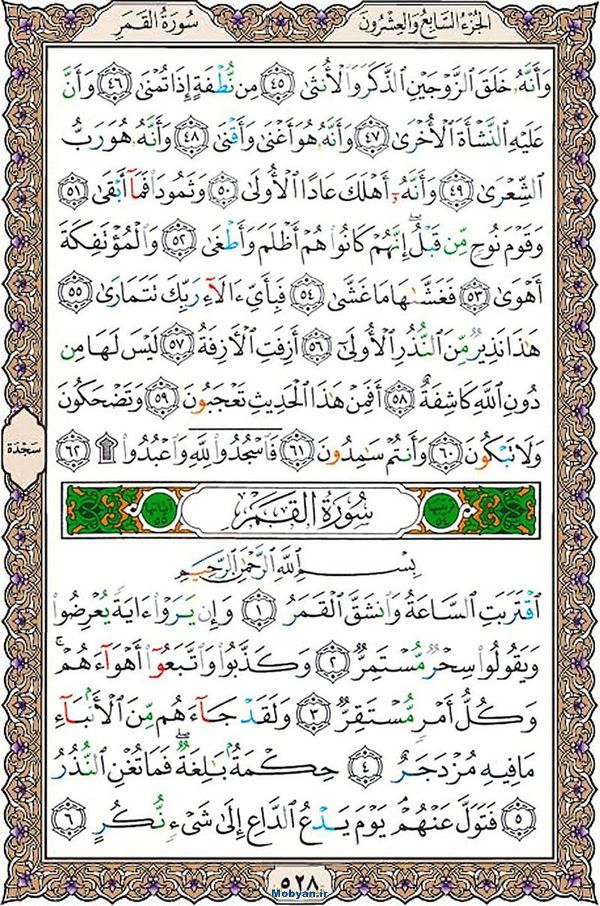 الجُزءُ السَّابِعُ وَالعِشْرُونَ
سُورَةُ القَمَرِ
وَأَنَّهُۥ خَلَقَ ٱلزَّوْجَيْنِ ٱلذَّكَرَ وَٱلْأُنثَىٰ ٤٥ مِن نُّطْفَةٍ إِذَا تُمْنَىٰ ٤٦ وَأَنَّ
عَلَيْهِ ٱلنَّشْأَةَ ٱلْأُخْرَىٰ ٤٧ وَأَنَّهُۥ هُوَ أَغْنَىٰ وَأَقْنَىٰ ٤٨ وَأَنَّهُۥ هُوَ رَبُّ
ٱلشِّعْرَىٰ ٤٩ وَأَنَّهُۥٓ أَهْلَكَ عَادًا ٱلْأُولَىٰ ٥٠ وَثَمُودَا۟ فَمَآ أَبْقَىٰ ٥١
وَقَوْمَ نُوحٍ مِّن قَبْلُ ۖ إِنَّهُمْ كَانُوا۟ هُمْ أَظْلَمَ وَأَطْغَىٰ ٥٢ وَٱلْمُؤْتَفِكَةَ
أَهْوَىٰ ٥٣ فَغَشَّىٰهَا مَا غَشَّىٰ ٥٤ فَبِأَىِّ ءَالَآءِ رَبِّكَ تَتَمَارَىٰ ٥٥
هَٰذَا نَذِيرٌ مِّنَ ٱلنُّذُرِ ٱلْأُولَىٰٓ ٥٦ أَزِفَتِ ٱلْءَازِفَةُ ٥٧ لَيْسَ لَهَا مِن
دُونِ ٱللَّهِ كَاشِفَةٌ ٥٨ أَفَمِنْ هَٰذَا ٱلْحَدِيثِ تَعْجَبُونَ ٥٩ وَتَضْحَكُونَ
وَلَا تَبْكُونَ ٦٠ وَأَنتُمْ سَٰمِدُونَ ٦١ فَٱسْجُدُوا۟ لِلَّهِ وَٱعْبُدُوا۟ ۩ ٦٢
سَجْدَة
سُورَةُ القَمَرِ
بِسْمِ ٱللَّهِ ٱلرَّحْمَٰنِ ٱلرَّحِيمِ
ٱقْتَرَبَتِ ٱلسَّاعَةُ وَٱنشَقَّ ٱلْقَمَرُ ١ وَإِن يَرَوْا۟ ءَايَةً يُعْرِضُوا۟
وَيَقُولُوا۟ سِحْرٌ مُّسْتَمِرٌّ ٢ وَكَذَّبُوا۟ وَٱتَّبَعُوٓا۟ أَهْوَآءَهُمْ ۚ
وَكُلُّ أَمْرٍ مُّسْتَقِرٌّ ٣ وَلَقَدْ جَآءَهُم مِّنَ ٱلْأَنۢبَآءِ
مَا فِيهِ مُزْدَجَرٌ ٤ حِكْمَةٌۢ بَٰلِغَةٌ ۖ فَمَا تُغْنِ ٱلنُّذُرُ
٥ فَتَوَلَّ عَنْهُمْ ۘ يَوْمَ يَدْعُ ٱلدَّاعِ إِلَىٰ شَىْءٍ نُّكُرٍ ٦
٥٢٨
Mobyan.ir